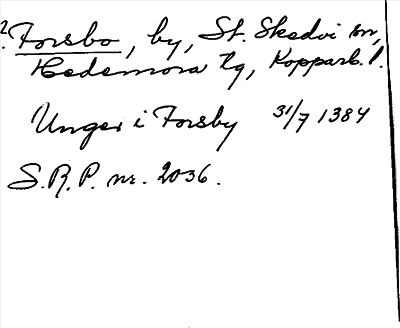 2. Forsbo, by, St. Skedvi sn,
Hedemora tg, Kopparb. l.
Unger i Forsby 31/7 1384
S.R.P. nr. 2036.